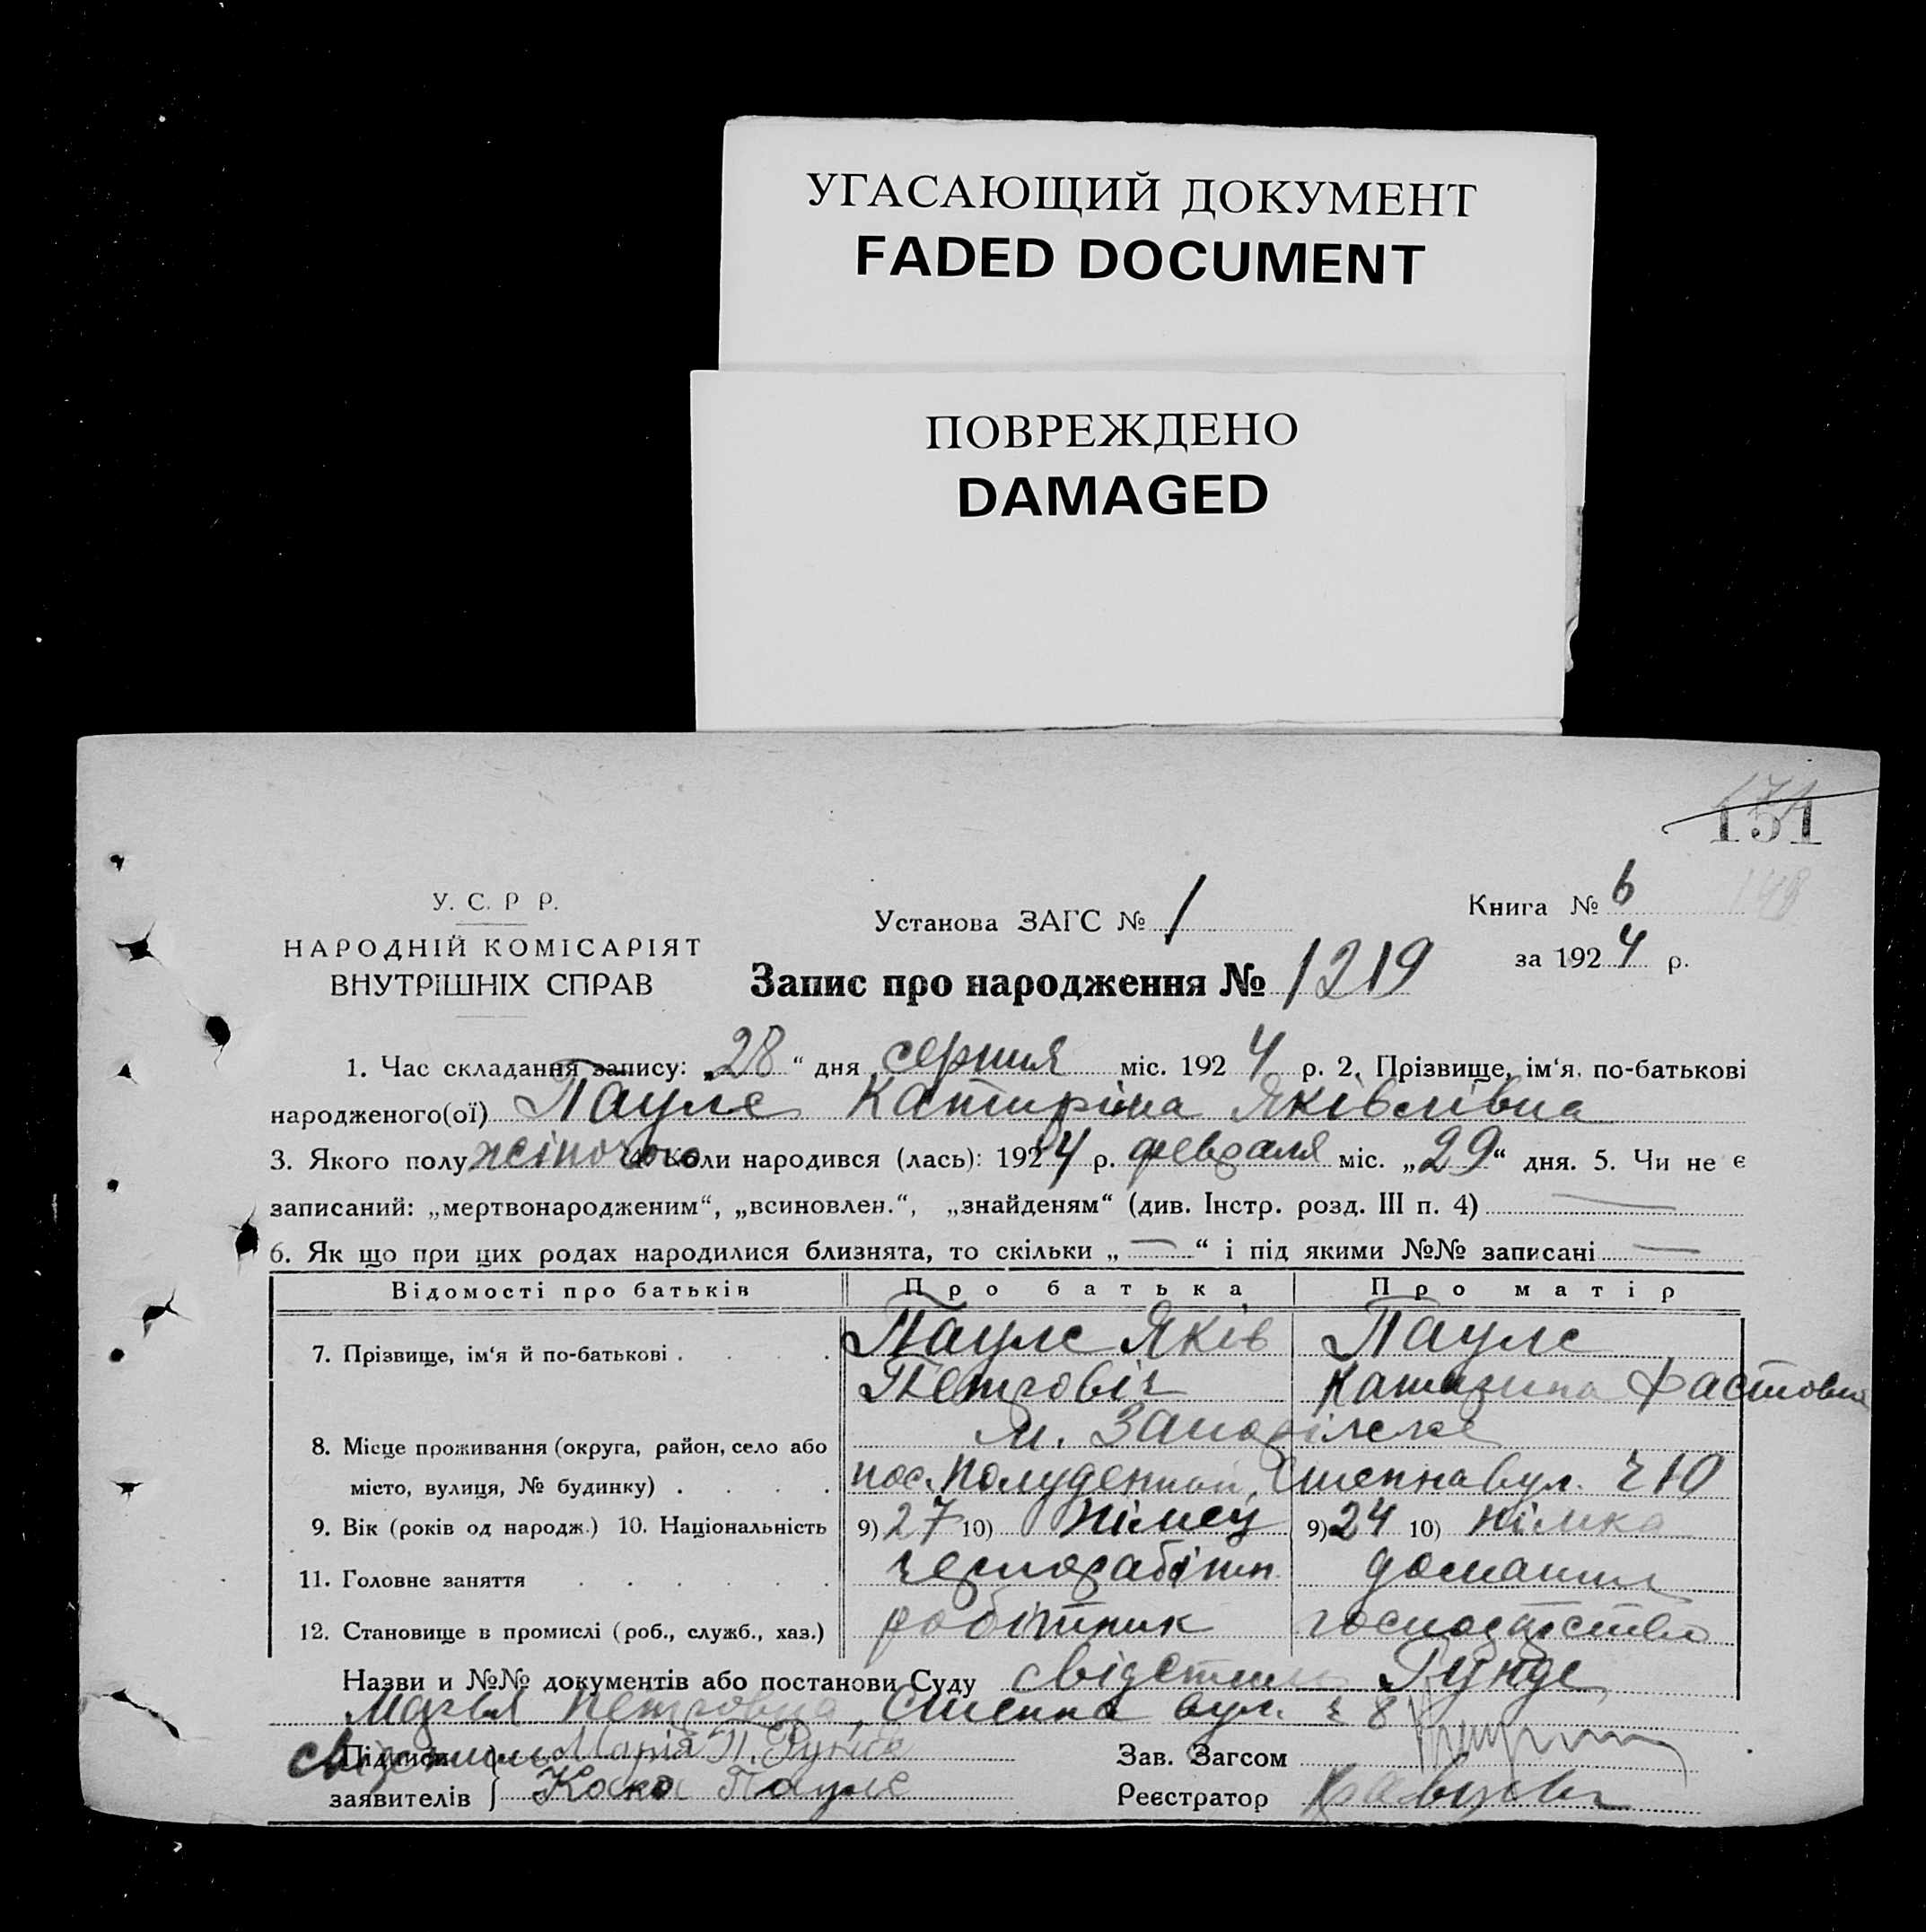 УГАСАЮЩИЙ ДОКУМЕНТ
FADED DOCUMENT
ПОВРЕЖДЕНО
DAMAGED
151
У. С. Р Р.
НАРОДНІЙ КОМІСАРІЯТ
ВНУТРІШНІХ СПРАВ
Установа ЗАГС № 1
Книга № 6
за 1924 р.
Запис про народження № 1219
1. Час складання запису: „28“ дня серпня міс. 1924 р. 2. Прізвище, ім‘я, по-батькові
народженого(ої) Паулс Катиріна Яківлівна
3. Якого полу жіночого 4. Коли народився (лась): 1924 р. февраля міс. „29“ дня. 5. Чи не є
записаний: „мертвонародженим“, „всиновлен.“, „знайденям“ (див. Інстр. розд. III п. 4) —
6. Як що при цих родах народилися близнята, то скільки „—“ і під якими №№ записані —
Відомості про батьків Про батька Про матір
7. Прізвище, ім‘я й по-батькові . . . . Паулс Яків Паулс
Петровіч Катерина
8. Місце проживання (округа, район, село або м. Запоріжже
місто, вулиця, № будинку) . . . . пос. Полуденний, Степна вул. ч 10
9. Вік (років од народж.) 10. Національність 9) 27 10) Німец 9) 24 10) Німка
11. Головне заняття . . . . . . чернорабітн. домашнє
12. Становище в промислі (роб., служб., хаз.) робітник господарство
Назви и №№ документів або постанови Суду свідетили Гунде
Марья Петровна, Степна вул. ч 8
Підписи свідетили Марія П.
заявителів Паулс
Зав. Загсом
Реєстратор